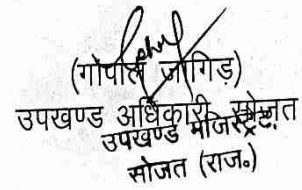 (गोपाल जांगिड़)
उपखण्ड अधिकारी, सोजत
उपखण्ड मजिस्ट्रेट,
सोजत (राज०)